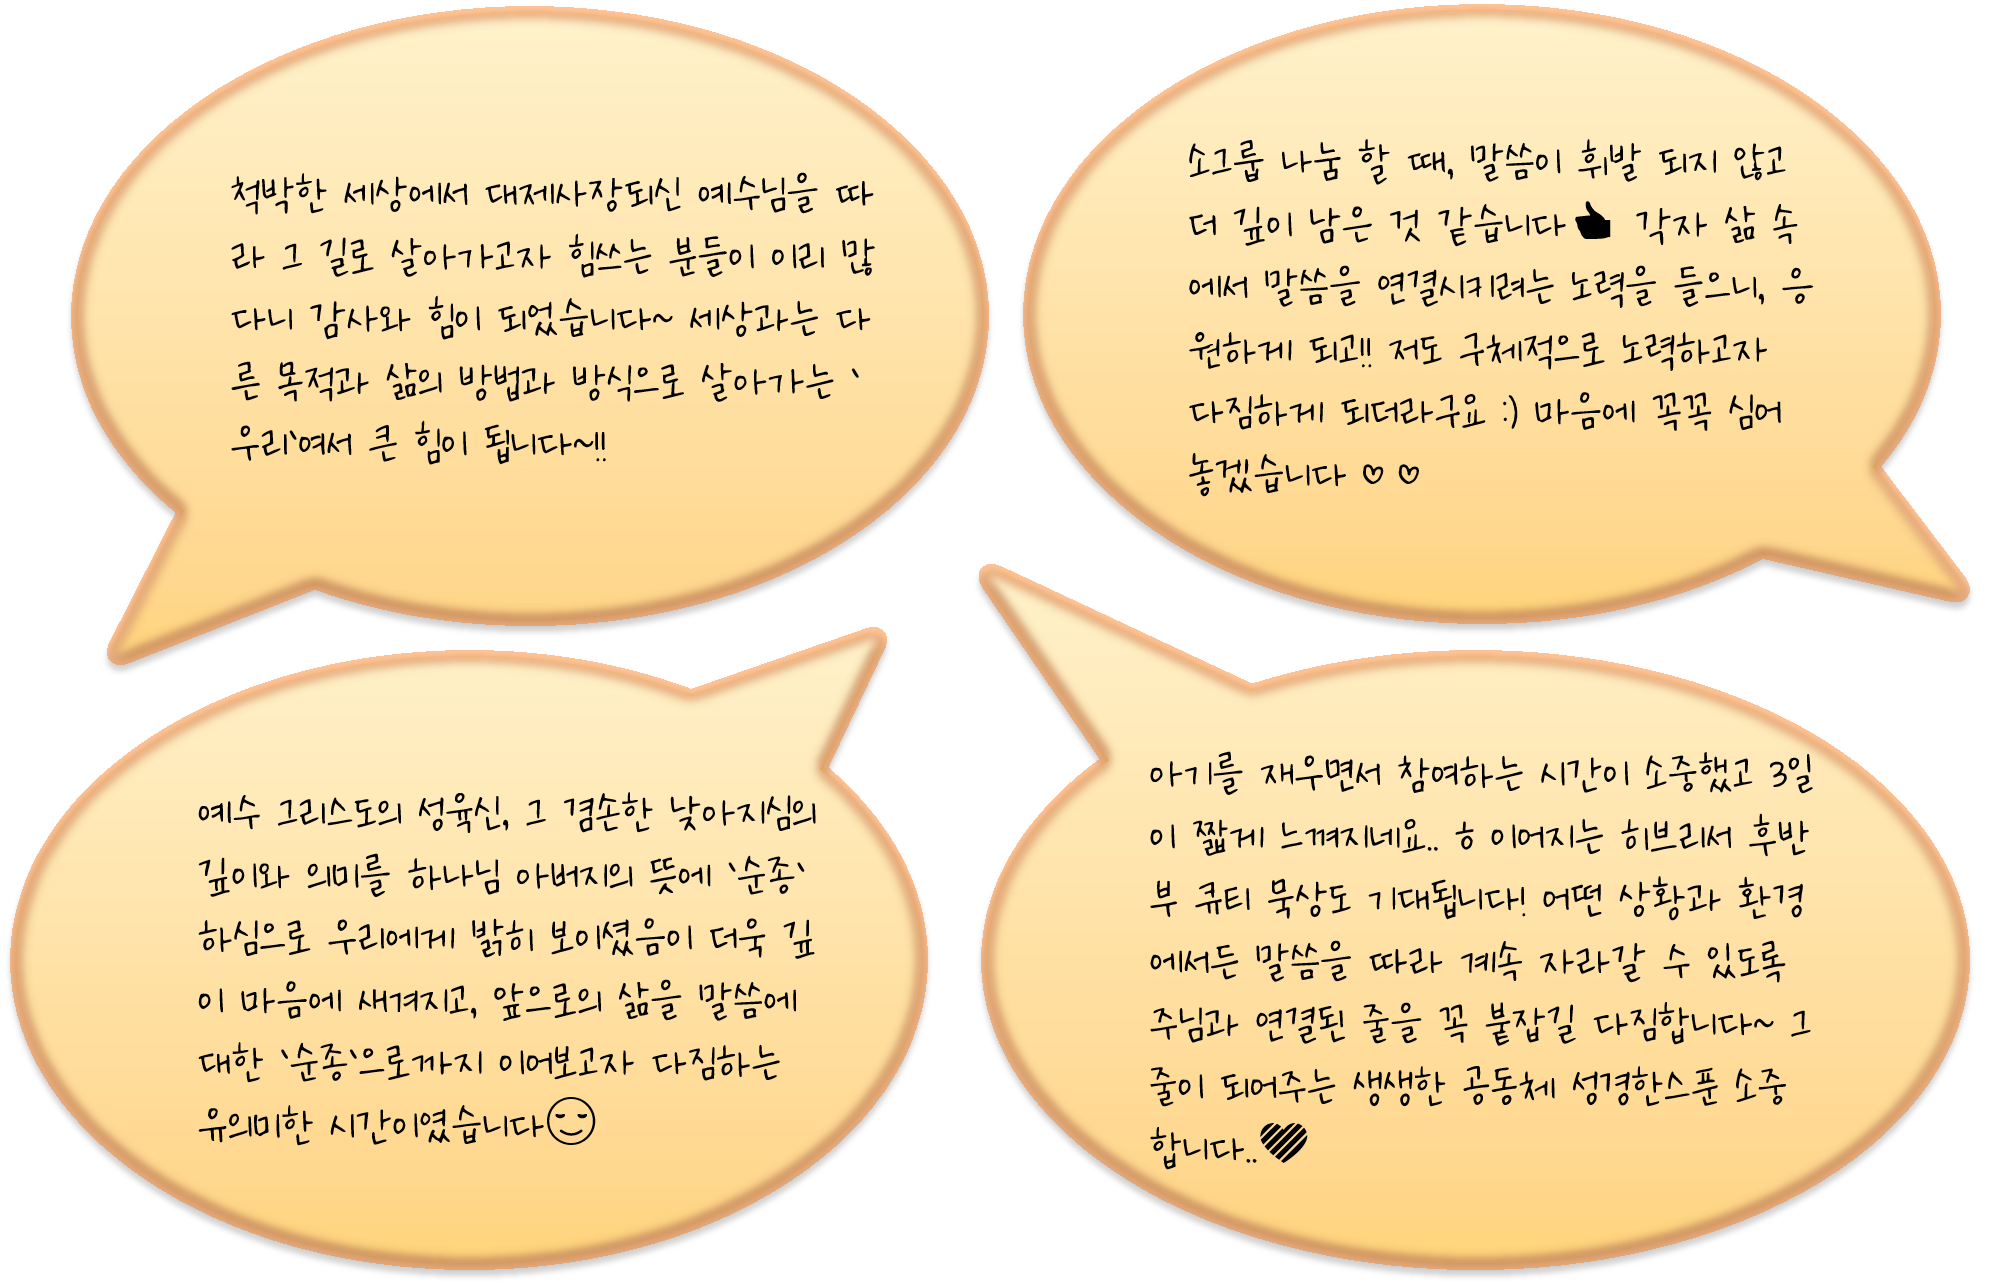 척박한 세상에서 대제사장되신 예수님을 따
라 그 길로 살아가고자 힘쓰는 분들이 이리 많
다니 감사와 힘이 되었습니다~ 세상과는 다
른 목적과 삶의 방법과 방식으로 살아가는 `
우리`여서 큰 힘이 됩니다~!!
소그룹 나눔 할 때, 말씀이 휘발 되지 않고
더 깊이 남은 것 같습니다👍 각자 삶 속
에서 말씀을 연결시키려는 노력을 들으니, 응
원하게 되고!! 저도 구체적으로 노력하고자
다짐하게 되더라구요 :) 마음에 꼭꼭 심어
놓겠습니다 ♡ ♡
예수 그리스도의 성육신, 그 겸손한 낮아지심의
깊이와 의미를 하나님 아버지의 뜻에 `순종`
하심으로 우리에게 밝히 보이셨음이 더욱 깊
이 마음에 새겨지고, 앞으로의 삶을 말씀에
대한 `순종`으로까지 이어보고자 다짐하는
유의미한 시간이였습니다😌
아기를 재우면서 참여하는 시간이 소중했고 3일
이 짧게 느껴지네요.. ㅎ 이어지는 히브리서 후반
부 큐티 묵상도 기대됩니다! 어떤 상황과 환경
에서든 말씀을 따라 계속 자라갈 수 있도록
주님과 연결된 줄을 꼭 붙잡길 다짐합니다~ 그
줄이 되어주는 생생한 공동체 성경한스푼 소중
합니다..♥